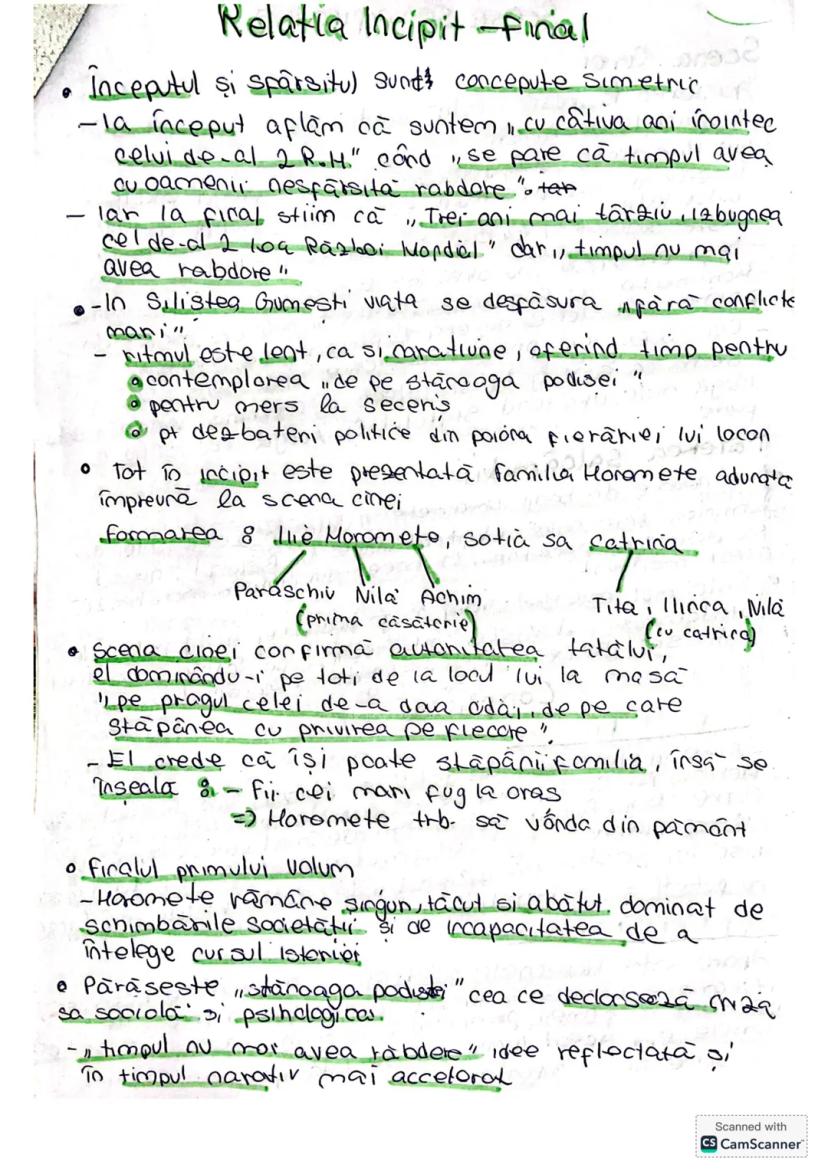 Relația Incipit – Final
• Începutul și sfârsitul sunt concepte simetric
– la început aflăm că suntem „cu câtiva ani înointec
celui de-al 2 R.M." când „se pare că timpul avea
cu oamenii nesfârsită rabdare".
– Iar la final stim că „Trei ani mai târziu, izbugnea
cel de-al 2 lea Război Mondial" dar „timpul nu mai
avea rabdare"
• – In Silistea Gumesti viata se desfăsura „fără conflicte
mari"
– ritmul este lent, ca si naratiune, oferind timp pentru
• contemplarea „de pe stănoaga podisei"
• pentru mers la seceris
• pt dezbateri politice din poiana fierăriei lui Iocan
• Tot în incipit este prezentată familia Moromete adunata
împreună la scena cinei
formarea : Ilie Moromete, sotia sa Catrina
Paraschiv Nilă Achim
Tita, Ilinca, Nilă
(prima căsătorie)
(cu catrica)
• Scena cinei confirmă autoritatea tatălui,
el dominându-i pe toti de la locul lui la masă
„pe pragul celei de-a doua odăi, de pe care
stăpânea cu privirea pe fiecare".
– El crede că îsi poate stăpânii familia, însă se
înseală : – Fii cei mari fug la oras
=> Moromete trb. să vândă din pământ
• finalul primului volum
– Moromete rămâne singur, tăcut si abătut, dominat de
schimbările societătii și de incapacitatea de a
întelege cursul istoriei
• Părăseste „stănoaga podistei" cea ce declansează criza
sa socială si psihologica.
– „timpul nu mai avea răbdare" idee reflectată și
în timpul narativ mai accelerat
Scanned with
CS CamScanner